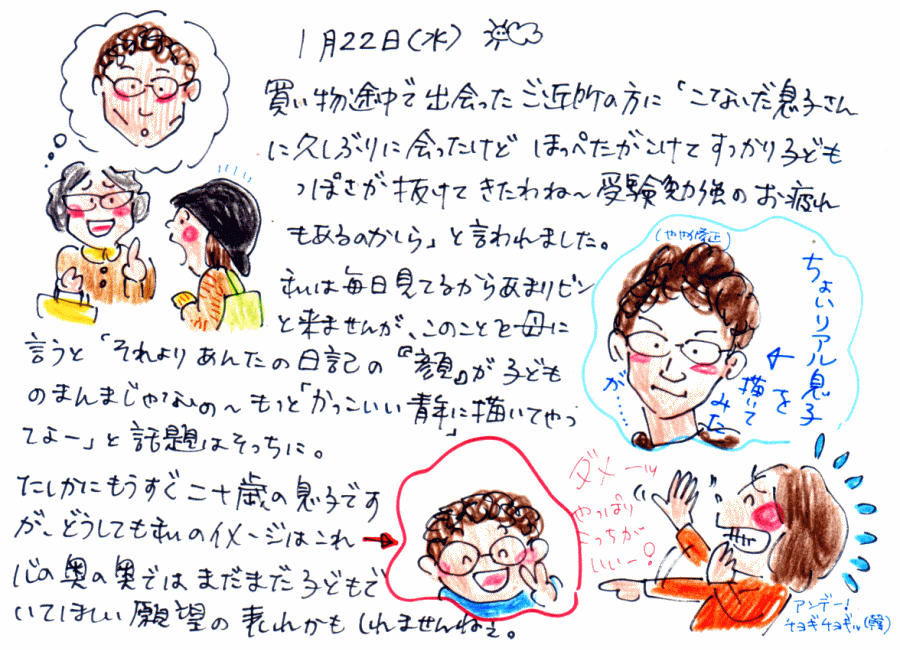 1月22日(水)
買い物途中で出会ったご近所の方に「こないだ息子さん
に久しぶりに会ったけど ほっぺたがこけてすっかり子ども
っぽさが抜けてきたわね～受験勉強のお疲れ
もあるのかしら」と言われました。
私は毎日見てるからあまりピン
と来ませんが、このことを母に
言うと「それよりあんたの日記の『顔』が子ども
のまんまじゃないの～もっと「かっこいい青年」に描いてやっ
てよー」と話題はそっちに。
たしかにもうすぐ二十歳の息子です
が、どうしても私のイメージはこれ
心の奥の奥ではまだまだ子どもで
いてほしい願望の表れかもしれませんねぇ。
(やや修正)
ちょいリアル息子
を
描いて
みた
が……
ダメーッ
やっぱり
こっちが
いいー!
アンデー!
チョギチョギッ(韓)